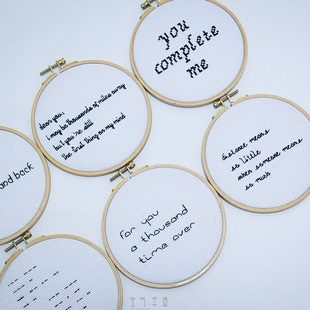 you
complete
me
dear you,
i may be thousands of miles away
but you're still
the first thing on my mind
distance means
so little
when someone means
so much
and back
for you
a thousand
time over